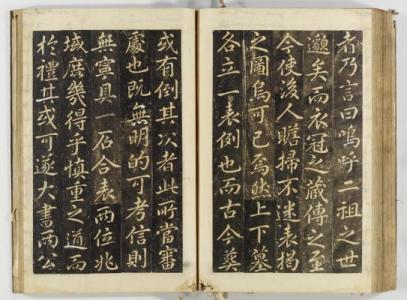 者乃言曰嗚呼二祖之世
邈矣而衣冠之藏傳之至
今使後人瞻掃不迷表揭
之圖烏可已焉然上下墓
各立一表例也而古今葬
或有倒其次者此所當審
處也既無明的可考信則
無寧具一石合表兩位兆
域庶幾得乎慎重之道而
於禮其或可遂大書兩公